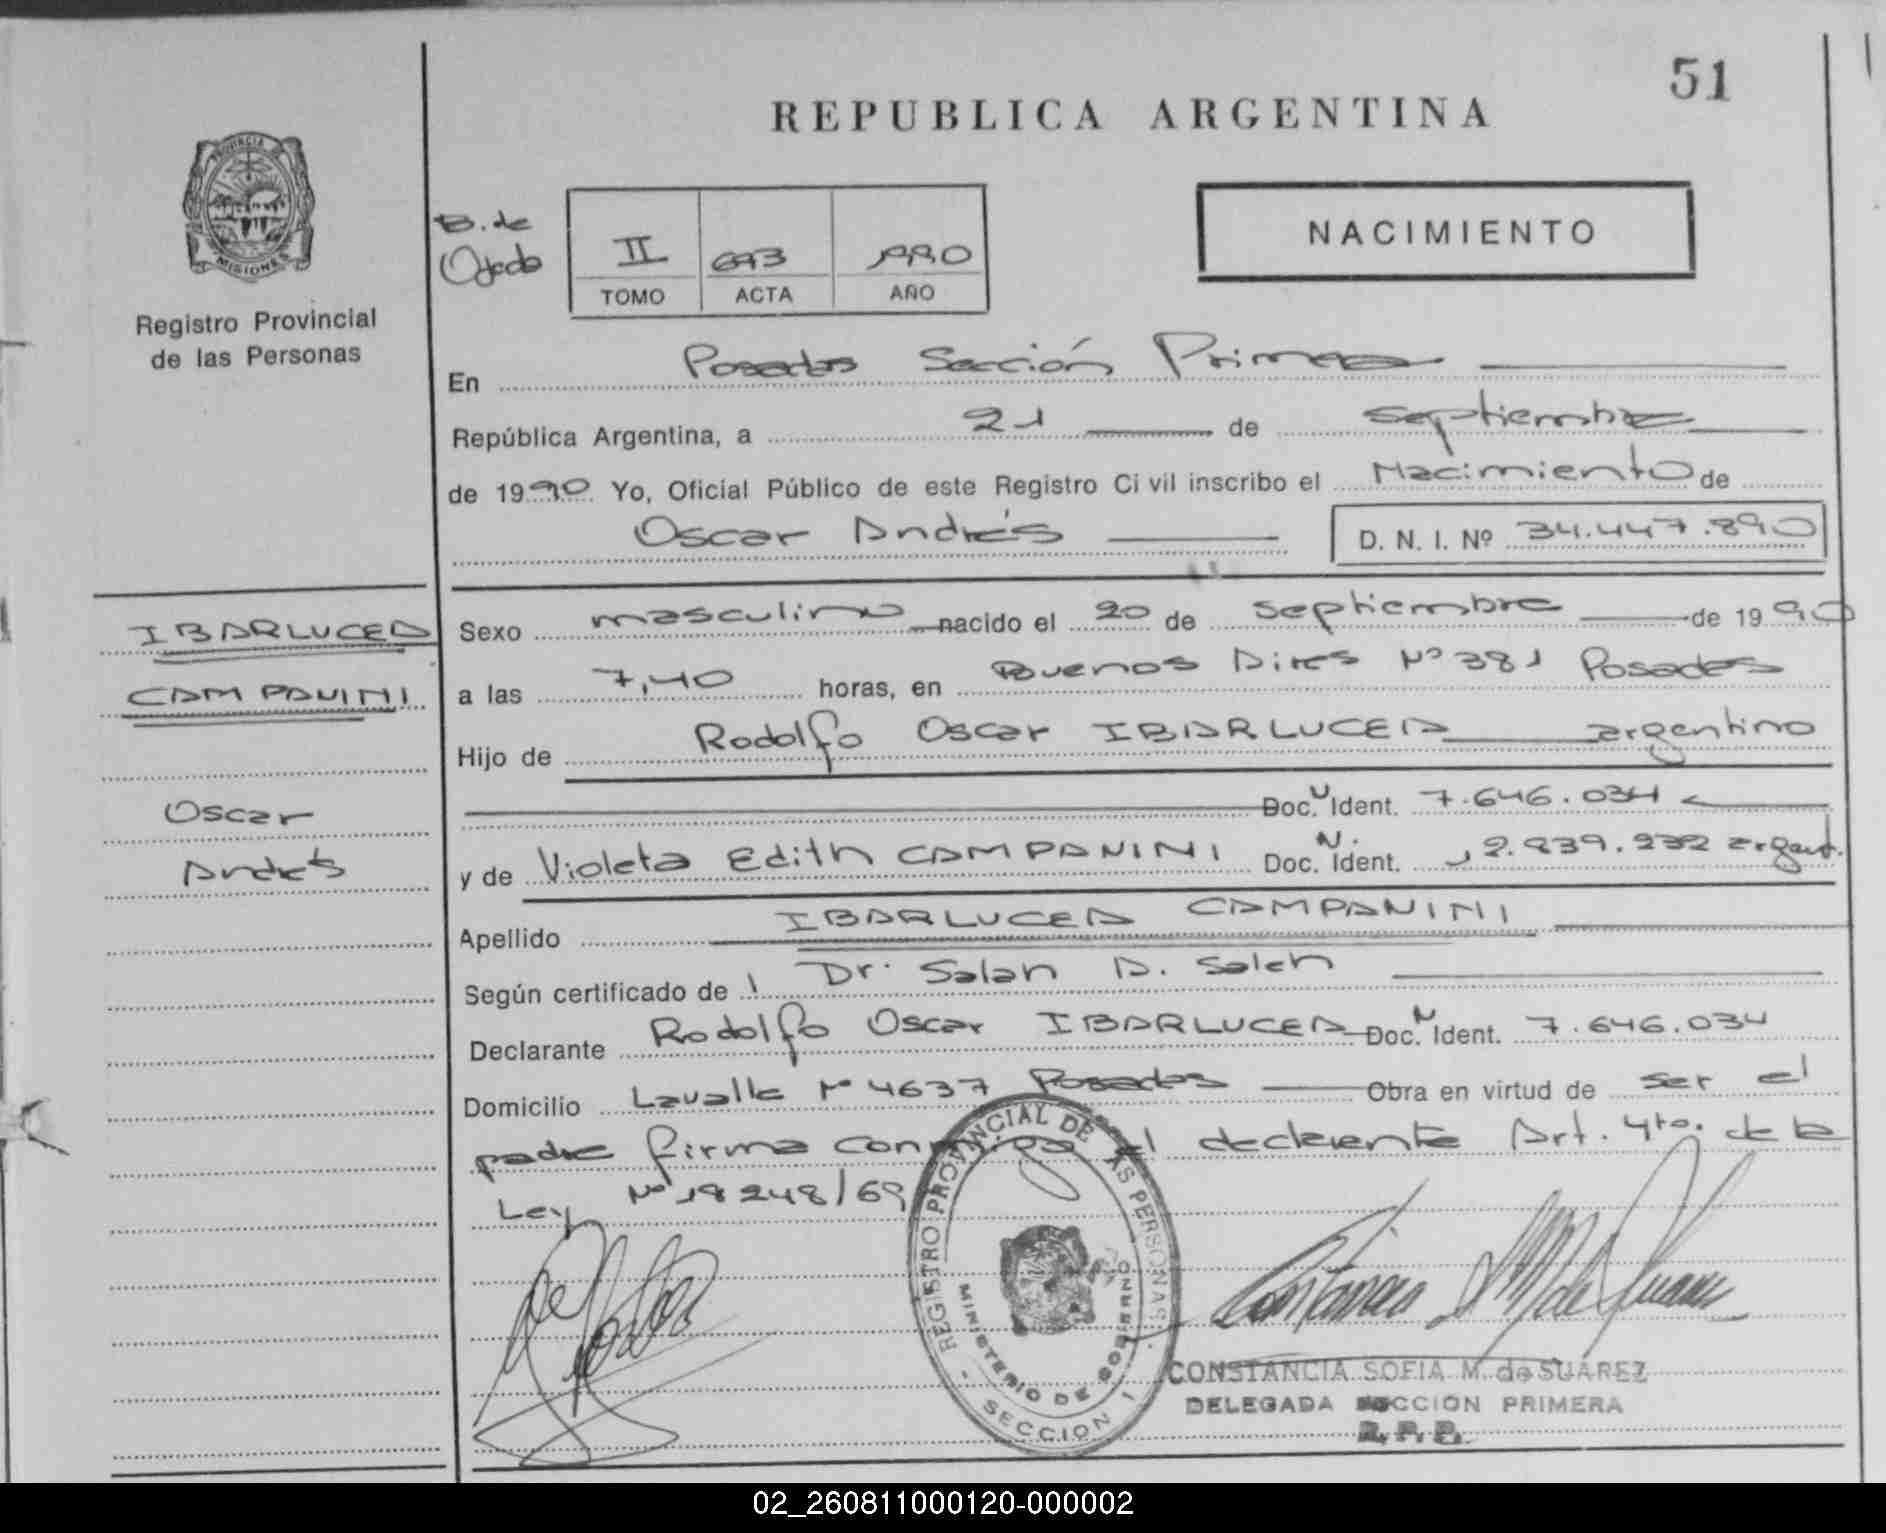 51
REPUBLICA ARGENTINA
PROVINCIA DE
MISIONES
Registro Provincial
de las Personas
B. de
II 693 1990
TOMO ACTA AÑO
NACIMIENTO
En Posadas Sección Primera
República Argentina, a 21 de septiembre
de 1990 Yo, Oficial Público de este Registro Civil inscribo el Nacimiento de
Oscar Andrés D. N. I. Nº 34.447.890
IBARLUCEA
CAMPANINI
Oscar
Andrés
Sexo masculino nacido el 20 de septiembre de 1990
a las 7,40 horas, en Buenos Aires Nº 381 Posadas
Hijo de Rodolfo Oscar IBARLUCEA argentino
Doc. N Ident. 7.646.034
y de Violeta Edith CAMPANINI Doc. N. Ident. argent.
Apellido IBARLUCEA CAMPANINI
Según certificado de Dr. Salan A. Saleh
Declarante Rodolfo Oscar IBARLUCEA Doc. N Ident. 7.646.034
Domicilio Lavalle Nº 4637 Posadas Obra en virtud de ser el
padre firma conmigo el declarante Art. 4to. de la
Ley Nº 18248/69
REGISTRO PROVINCIAL DE LAS PERSONAS
MINISTERIO DE GOBIERNO
SECCION 1
CONSTANCIA SOFIA M. de SUAREZ
DELEGADA SECCION PRIMERA
R. P. P.
02_260811000120-000002